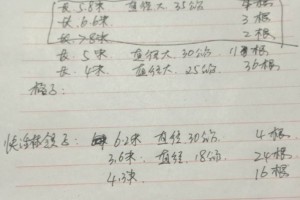 长 5.8米 直径大 35公分 4根
长 6.6米 3根
长 7.8米 2根
长 5米 直径大 30公分 11根
长 4米 直径大 25公分 36根
6.2米 直径 30公分 4根
3.6米 直径 18公分 24根
4.3米 16根